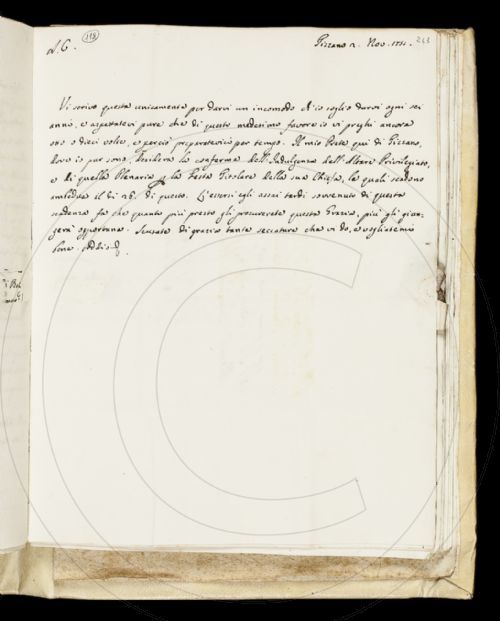 118
243
A. C.
Pizzano 2. Nov. 1751.
Vi scrivo questa unicamente per darvi un incomodo ch'io soglio darvi ogni sei
anni, e aspettatevi pure che di questo medesimo favore io vi preghi ancora
otto o dieci volte, e perciò preparatevici per tempo. Il mio Prete qui di Pizzano,
dove io pur sono, desidera la conferma dell'Indulgenza dell'Altare Privilegiato,
e di quella Plenaria p la Festa Titolare della sua Chiesa, le quali scadono
amledue il dì 26. di questo. L'essersi egli assai tardi sovvenuto di questa
scadenza fa che quanto più presto gli procurerete questa Grazia, più gli giun-
gerà opportuna. Scusate di grazia tante seccature che vi do, e vogliatemi
bene. Addio.